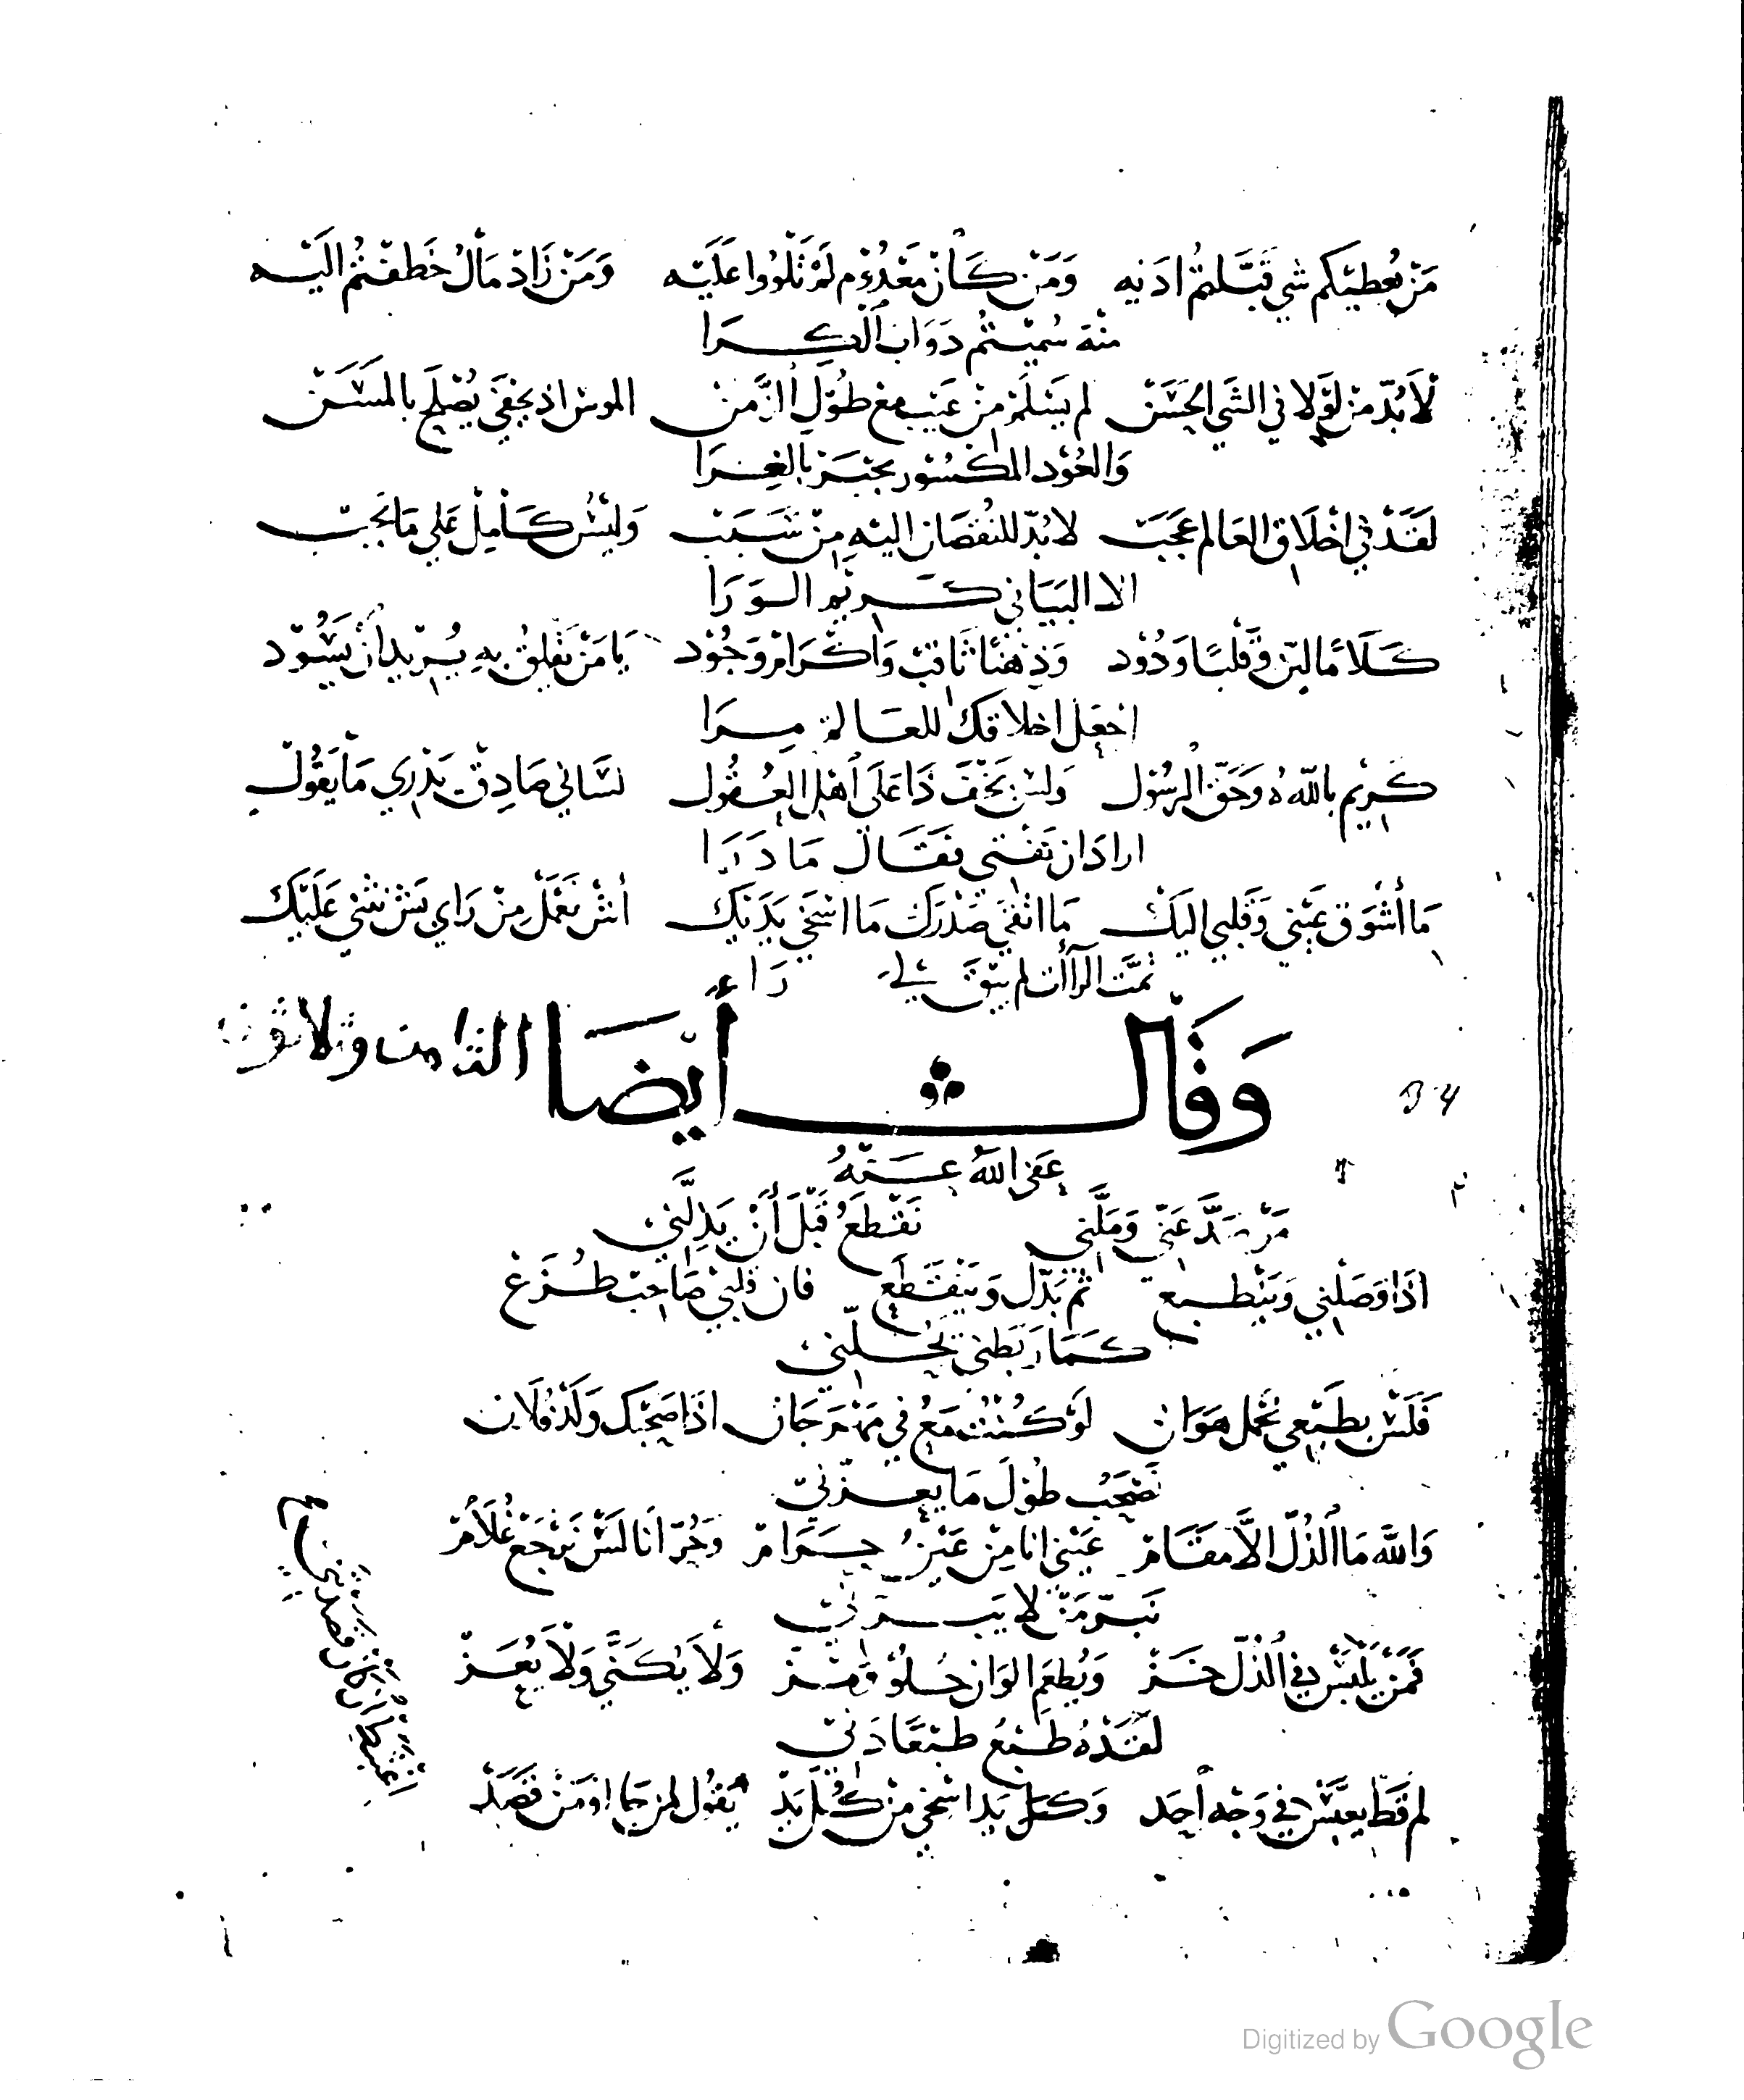 مَنْ يُعطيكم شي قَبَّلتُم اذنيه وَمَن كَانْ مَعْدُوْم لَمْ تَلْوُوا عَلَيْه وَمَنْ زَادْ مَالُ خَطفْتُم الَيْه
منهُ سُمّيتُم دَوَاب الكِرَا
لَابُدّ مِن لَوْلَا في الشي الحَسَنْ لم يَسْلَمْ مِنْ عَيب مع طُوْل الزَّمنْ الموس اذ يحفَى يُصْلَح بالمسَنْ
وَالعُوْد المكسُوْر يجبَرْ بالغِرَا
لَقَدْ في اخْلَاق العَالم عَجَبْ لابُدّ للنُقصَان اليْهِ مِنْ سَبَبْ وَليْسْ كَامِلْ عَلي مَا يَجبْ
الا البيَاني كَرِيْم الوَرَا
كَلَامًا ليّن وَقلبًا وَدُوْد وَذِهنًا ثَاقبْ وَاكْرَامْ وَجُوْد يَا مَنْ يَليقْ بهِ يُريدْ أنْ يَسُوْد
اجعَل اخلاقكْ للعَالم مِرَا
كَرِيْم بالله وَحَقّ الرسُوْل وَلس يَخْفَ ذَا عَلَى أهْل العُقُول لسَاني صَادِقْ يَدْرِي مَا يَقُوْل
ارادَ ان يَفْتَى فقَالْ مَا دَرَا
مَا أشْوَق عَيْني وَقَلبي اليَكْ مَا انقَى صَدْرَكْ مَا اسْخَى يَدَيْكْ أشْ نَعْمَلْ مِنْ رَاي بَشْ نثني عَلَيْكْ
تمَّت الرآآت لم يَبْقَ لي رَاءِ
وَقَالَ أَيْضًا الثامن وثلاثون
34
عَفَى اللهُ عَنْهُ
مَنْ صَدَّ عَنّي وَمَلَّني نَقْطَعُ قَبْلَ أنْ يَذِلَّني
اذَا وَصَلْني وَينْطبع ثم بَدّل وَيَنْقَطَع فان قلبي صَاحبْ طُزَعْ
كَمَا رَبَطني يحُلّني
فَلَسْ بطَبْعي نحْمل هَوَان لَوْ كُنْتْ مَعُ في مَهْرَجَان اذَا صَحبْك وَلَدْ فُلَان
نَصْحَبُ طُوْلَ مَا يعِزّني
وَاللهِ مَا الذُلّ الاَّ مقَامْ عَيْني انا مِنْ عَيْنُ حَرَامْ وَحُرّ انَا لَسْ نَرْجَعْ غُلَامْ
نَبَرّ مَنْ لا يَبَرّني
فَمَنْ يَلْبَسْ في الذُلّ خَزْ وَيُطعَم الوَان حُلوْ وَمُزْ وَلَا يُكَنَّى وَلَا يُعَزْ
لَقَدْهُ طَبْعُ طبْعًا دَنيْ
لم قَط يعبّسْ في وَجْه أحَد وَكل يَد اسْخى مِنْ كُل يَدْ يَقول لمن جَا اوْ مَنْ قَصَدْ
Digitized by Google